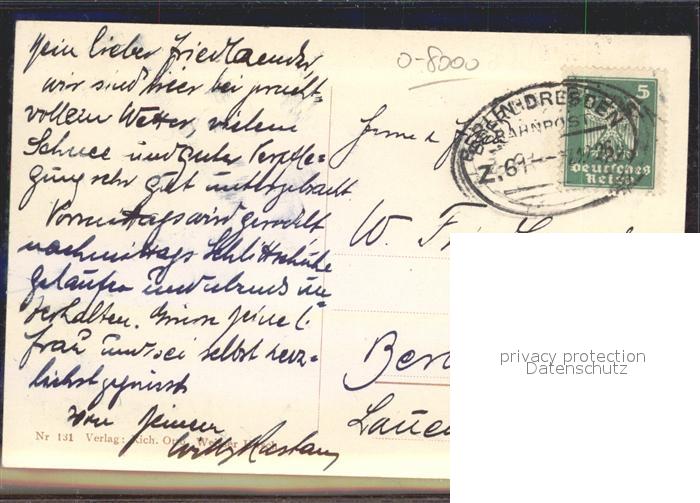 Mein lieber Friedlaender,
wir sind hier bei pracht-
vollem Wetter, vielem
Schnee und guter Verpfle-
gung sehr gut untergebracht
Vormittags wird gerodelt
nachmittags Schlittschuhe
gelaufen und abends un-
terhalten. Grüsse Deine l.
Frau und sei selbst herz-
lichst gegrüsst
von Deinem
Willy
Nr 131 Verlag: Rich. Otto
0-8000
BERLIN-DRESDEN
BAHNPOST
Z.61
5
Deutsches
Reich
W.
privacy protection
Datenschutz